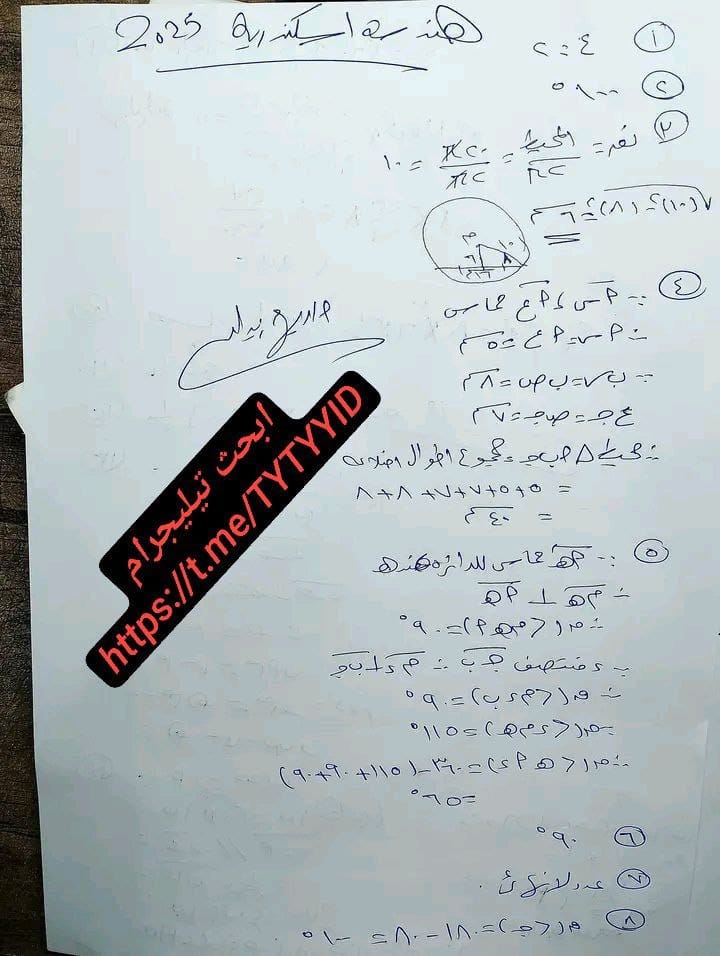 هندسه اسكندرية 2025
① ٤ : ٢
② ١٠٠°
③ نق = المحيط / ٢π = ٢٠π / ٢π = ١٠
√(١٠)² - (٨)² = ٦ سم
م ١٠ ٦ ٨ ١٦
④ ∵ أس، أع مماس
∴ أس = أع = ٥ سم
∵ ب س = ب ص = ٨ سم
ع ج = ص ج = ٧ سم
∴ محيط △ أ ب ج = مجموع اطوال اضلاعه
= ٥ + ٥ + ٧ + ٧ + ٨ + ٨
= ٤٠ سم
ابحث تيليجرام
https://t.me/TYTYYID
⑤ ∵ أهـ مماس للدائرة عند هـ
∴ م هـ ⊥ أهـ
∴ م(< م هـ أ) = ٩٠°
∵ د منتصف ج ب ∴ م د ⊥ ب ج
∴ م(< م د ب) = ٩٠°
∵ م(< د م هـ) = ١١٥°
∴ م(< هـ أ د) = ٣٦٠ - (١١٥ + ٩٠ + ٩٠)
= ٦٥°
⑥ ٩٠°
⑦ عدد لا نهائى .
⑧ م(< ج) = ١٨٠ - ٨٠ = ١٠٠°